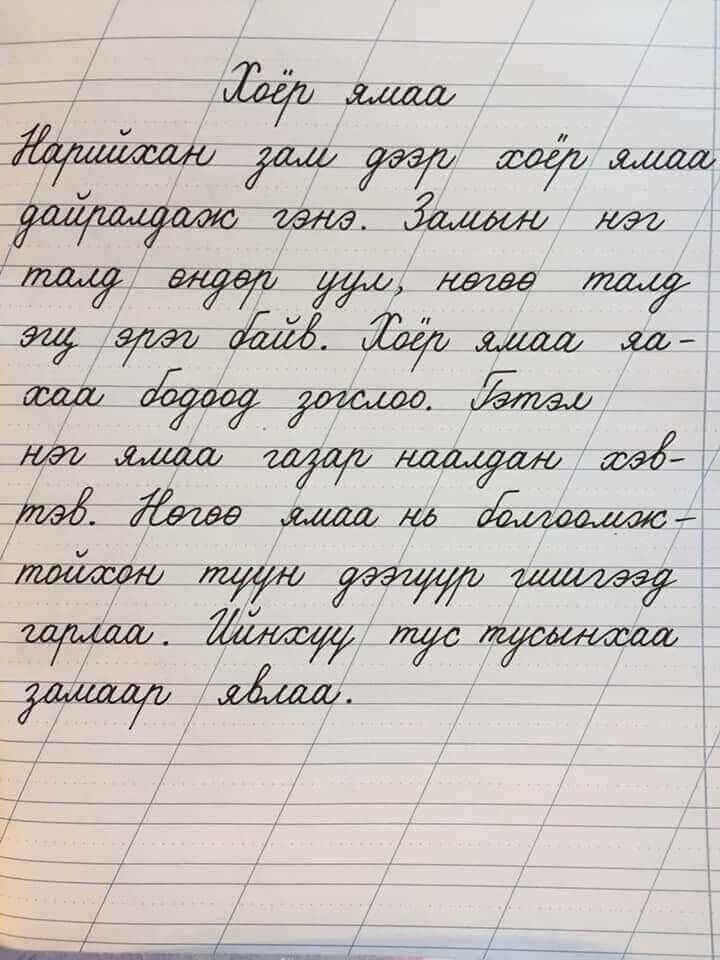 Хоёр ямаа
Нарийхан зам дээр хоёр ямаа
дайралдаж гэнэ. Замын нэг
талд өндөр уул, нөгөө талд
эгц эрэг байв. Хоёр ямаа яа-
хаа бодоод зогслоо. Гэтэл
нэг ямаа газар наалдан хэв-
тэв. Нөгөө ямаа нь болгоомж-
тойхон түүн дээгүүр гишгээд
гарлаа. Ийнхүү тус тусынхаа
замаар явлаа.